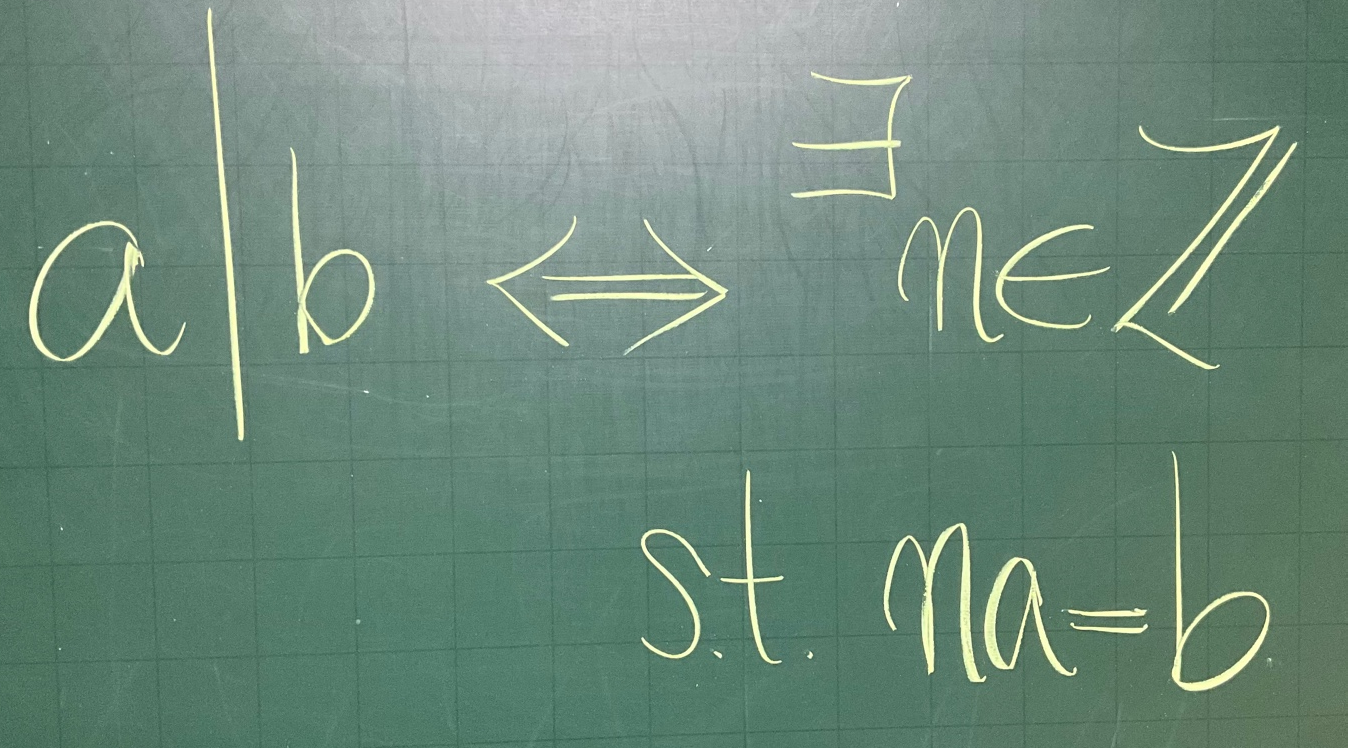 a|b ⟺ ∃n∈ℤ
s.t. na=b